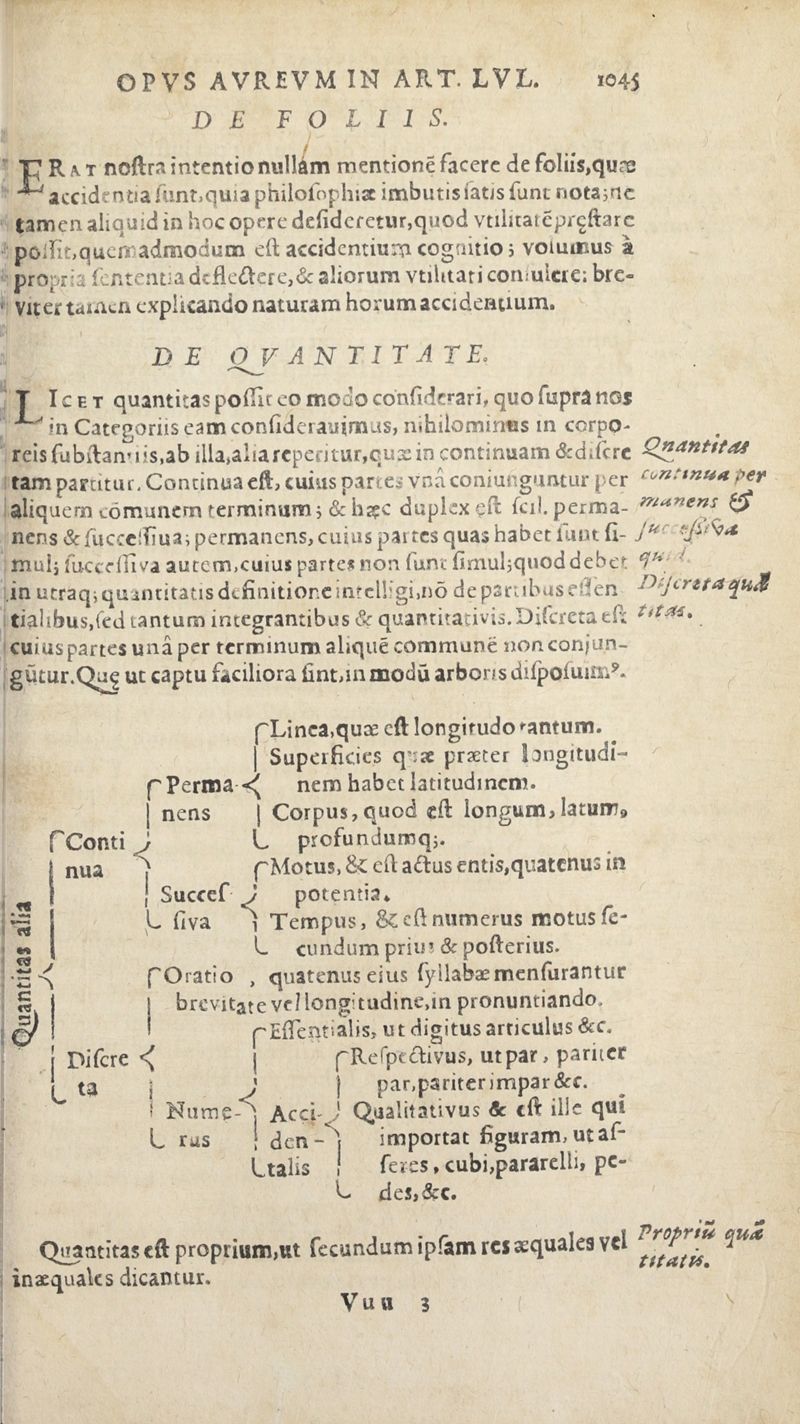 OPVS AVREVM IN ART. LVL. 1045
DE FOLIIS.
ERAT noſtra intentio nullám mentionē facere de foliis, quæ
accidentia ſunt, quia philoſophiæ imbutis ſatis ſunt nota; ne
tamen aliquid in hoc opere deſideretur, quod vtilitatē pręſtare
poſſit, quemadmodum eſt accidentium cognitio; voluimus à
propria ſententia deflectere, & aliorum vtilitati conſulere: bre-
viter tamen explicando naturam horum accidentium.
DE QVANTITATE.
LICET quantitas poſſit eo modo conſiderari, quo ſuprà nos
in Categoriis eam conſiderauimus, nihilominus in corpo-
reis ſubſtantiis, ab illa, alia reperitur, quæ in continuam & diſcre
tam partitur. Continua eſt, cuius partes vnâ coniunguntur per
aliquem cōmunem terminum; & hæc duplex eſt ſcil. perma-
nens & ſucceſſiua; permanens, cuius partes quas habet ſunt ſi-
mul; ſucceſſiva autem, cuius partes non ſunt ſimul; quod debet
in utraq; quantitatis definitione intelligi, nō de partibus eſſen
tialibus, ſed tantum integrantibus & quantitativis. Diſcreta eſt
cuius partes unâ per terminum aliquē communē non conjun-
gūtur. Quę ut captu faciliora ſint, in modū arboris diſpoſuimꝰ.
Quantitas
continua per
manens &
ſucceſſiva
Diſcreta quā
titas.
Linea, quæ eſt longitudo tantum.
Superficies quæ præter longitudi-
Perma nem habet latitudinem.
nens Corpus, quod eſt longum, latum,
Conti profundumq;.
nua Motus, & eſt actus entis, quatenus in
Succeſ potentia.
ſiva Tempus, & eſt numerus motus ſe-
cundum prius & poſterius.
Quantitas alia
Oratio, quatenus eius ſyllabæ menſurantur
brevitate vel longitudine, in pronuntiando.
Eſſentialis, ut digitus articulus &c.
Diſcre Reſpectivus, ut par, pariter
ta par, pariter impar &c.
Nume- Acci- Qualitativus & eſt ille qui
rus den- importat figuram, ut aſ-
talis feres, cubi, pararelli, pe-
des, &c.
Quantitas eſt proprium, ut ſecundum ipſam res æquales vel
inæquales dicantur.
Propriū quā
titatis.
Vuu 3